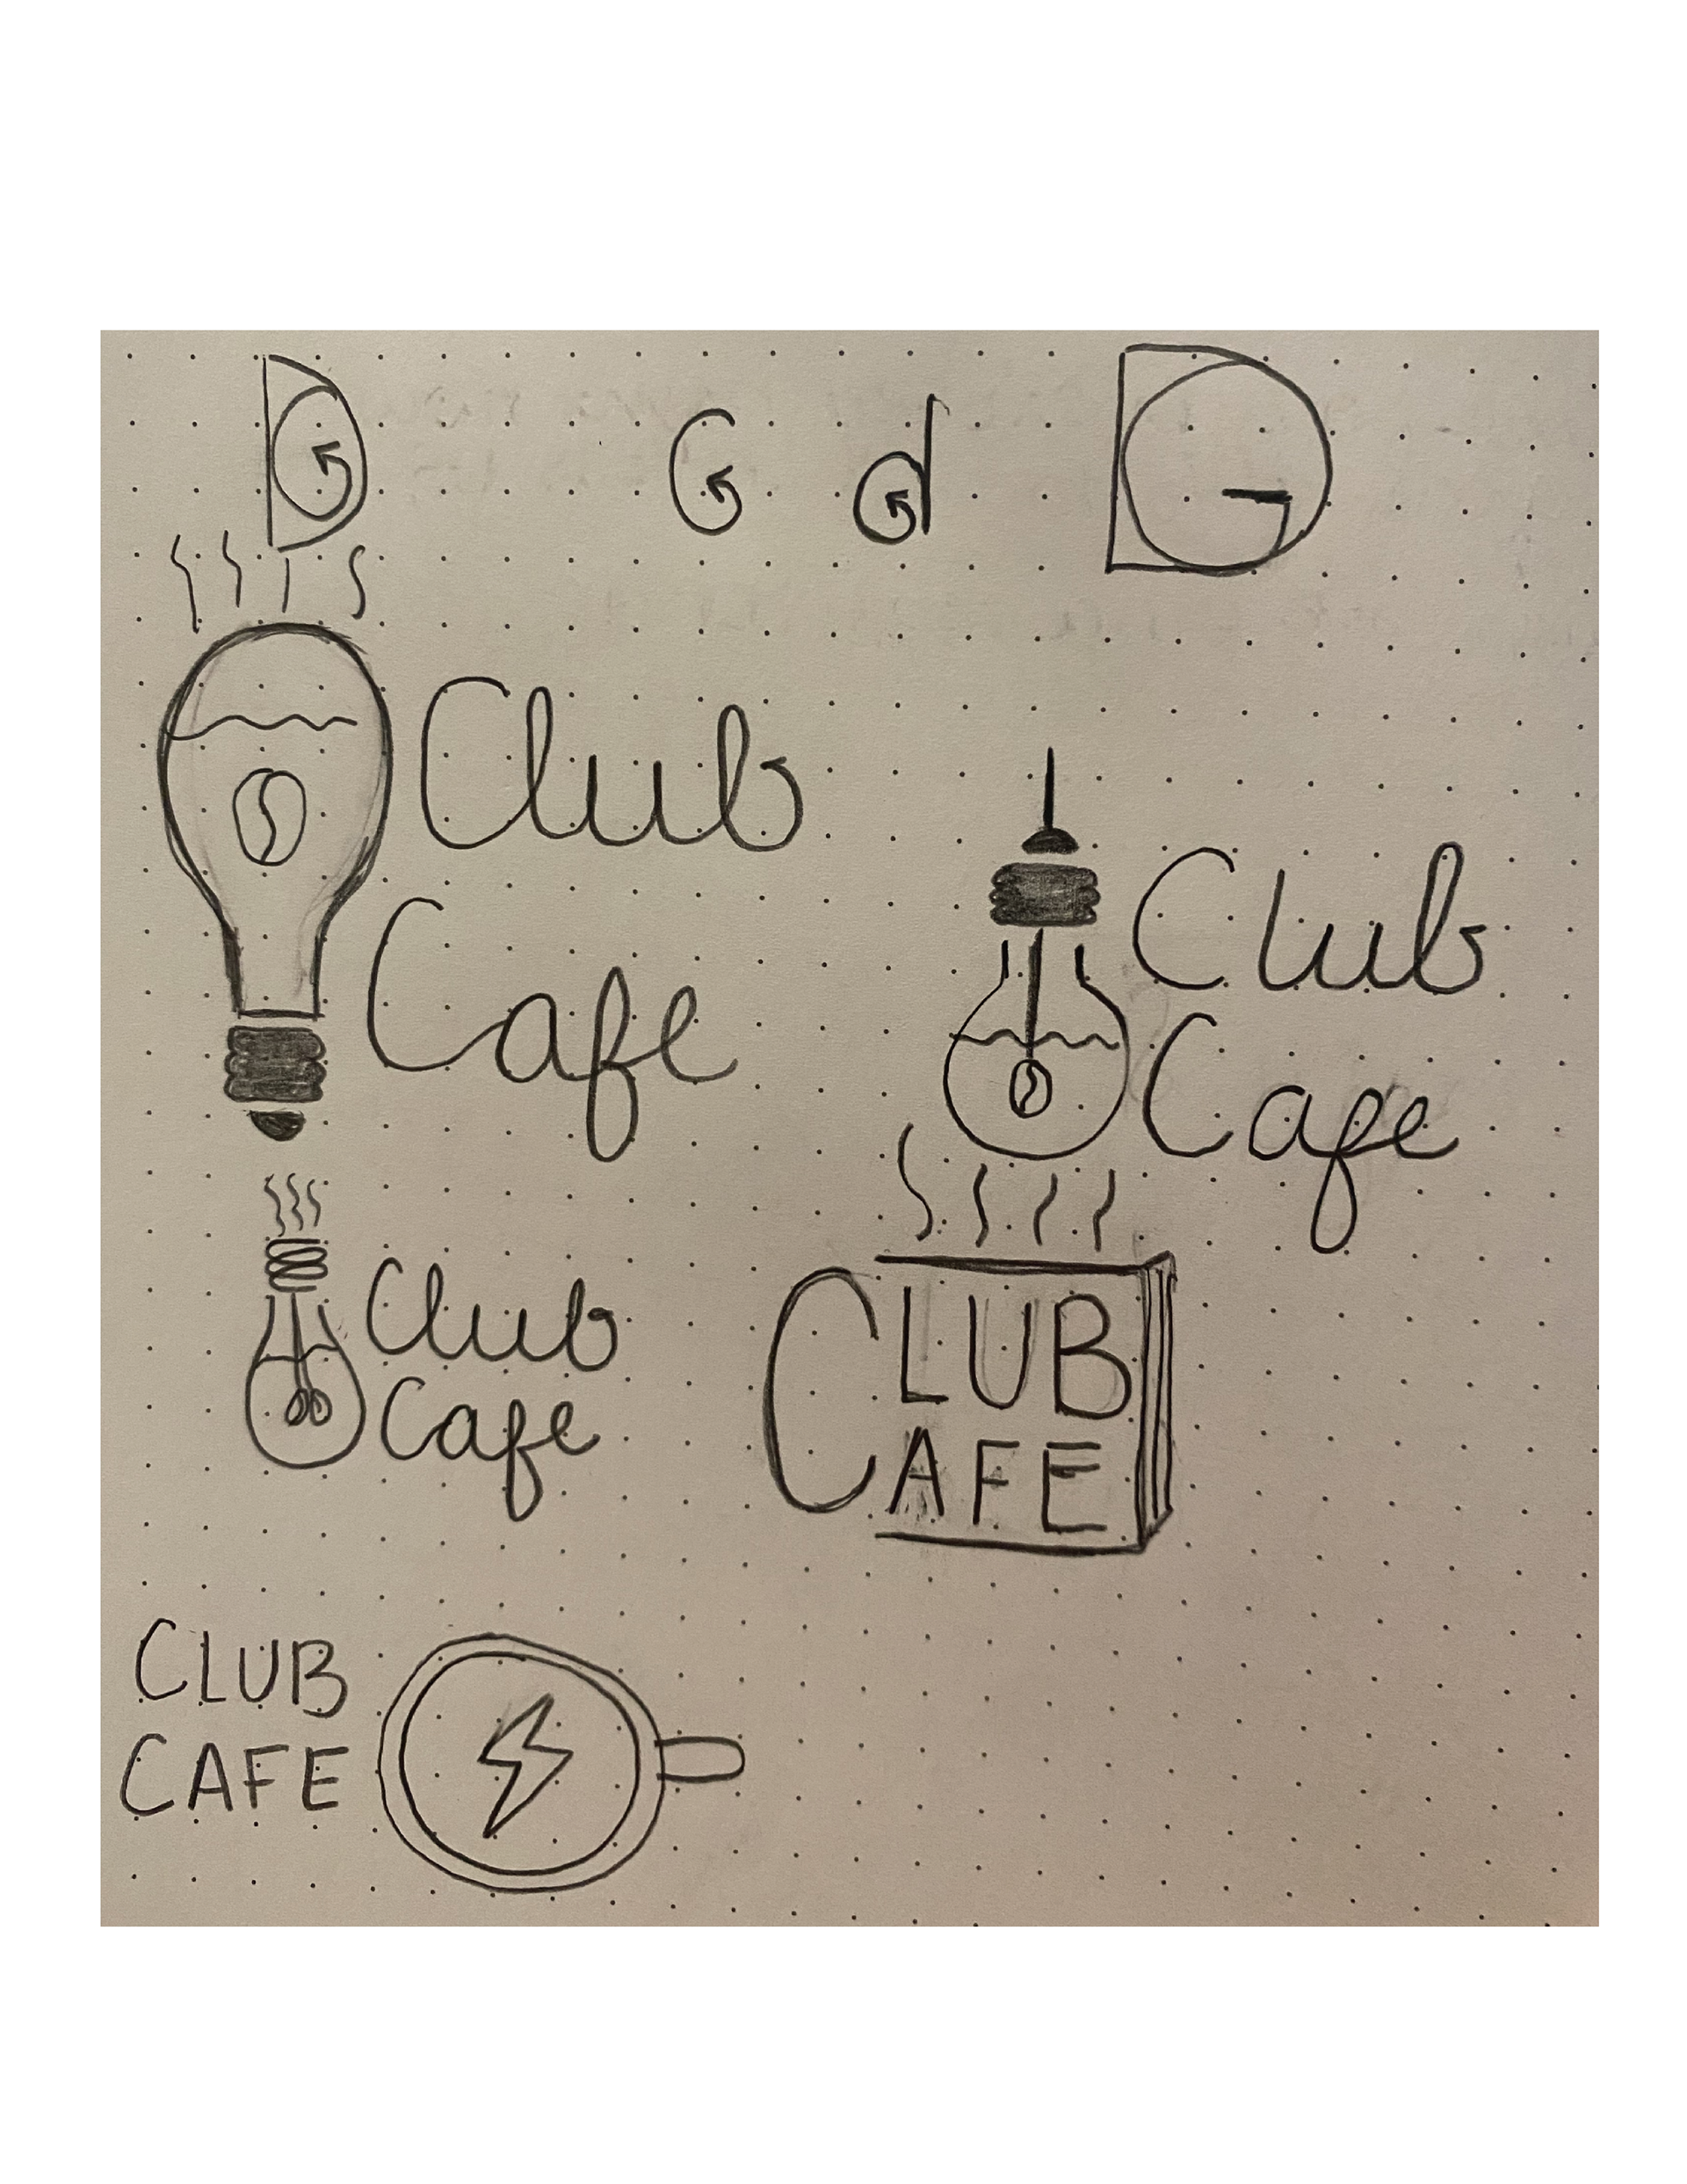 G
G
d
DG
Club
Cafe
Club
Cafe
Club
Cafe
CLUB
CAFE
CLUB
CAFE